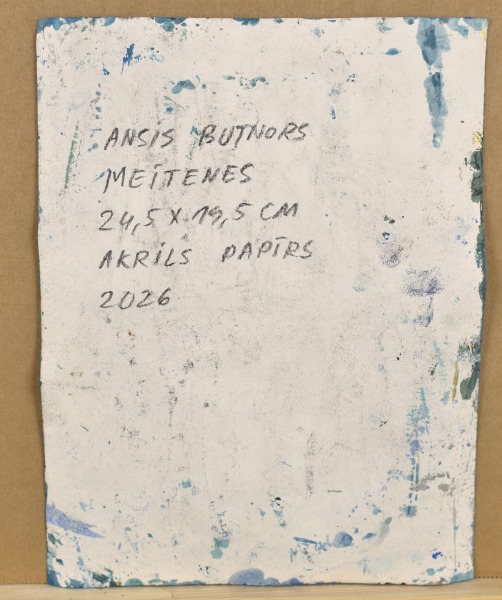 ANSIS BUTNORS
MEITENES
24,5 X 19,5 CM
AKRILS PAPĪRS
2026